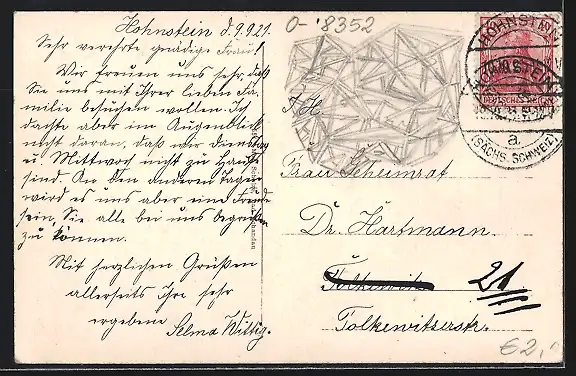 Hohnstein d. 9.9.21.
Sehr verehrte gnädige Frau!
Wir freuen uns sehr, daß
Sie uns mit Ihrer lieben Fa-
milie besuchen wollen. Ich
dachte aber im Augenblick
nicht daran, daß wir Dienstag
u. Mittwoch nicht zu Hause
sind. An den anderen Tagen
wird es uns aber eine Freude
sein, Sie alle bei uns begrüßen
zu können.
Mit herzlichen Grüßen
allerseits Ihre sehr
ergebene Selma Wittig.
O-'8352
HOHNSTEIN
DEUTSCHES REICH
a
(SÄCHS. SCHWEIZ)
Frau Geheimrat
Dr. Hartmann.
Tolkewitz
21
Tolkewitzerstr.
€2,-